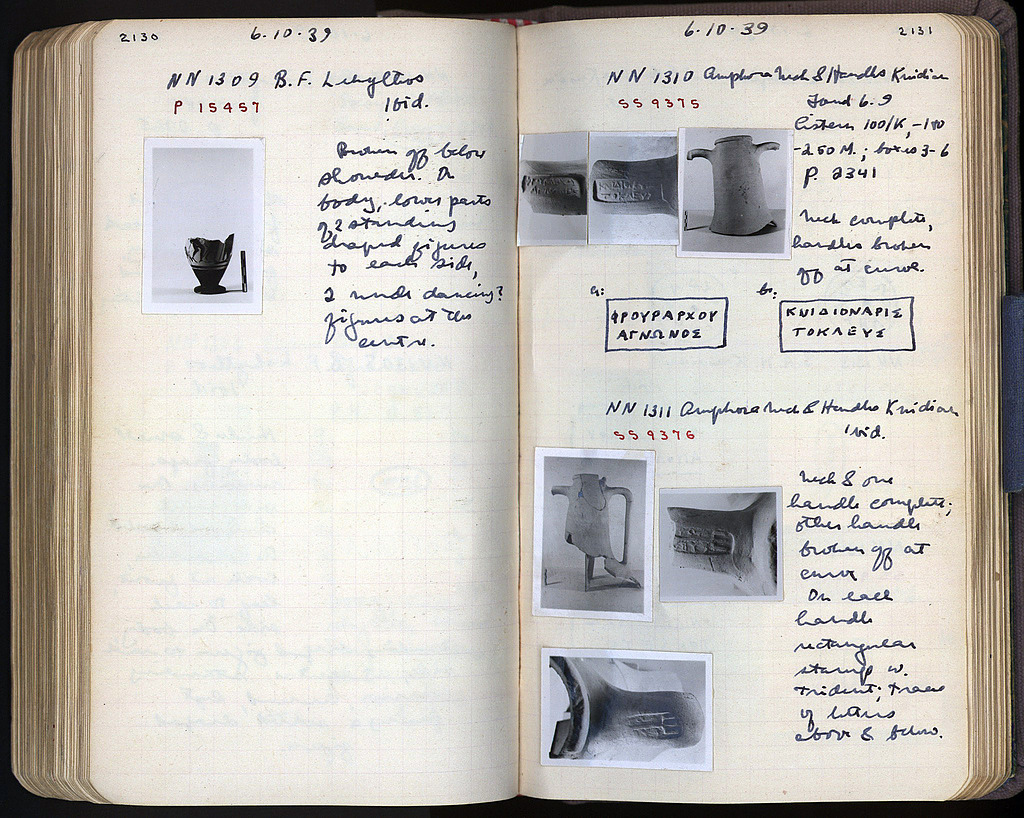 2130
6·10·39
NN 1309 B.F. Lekythos
P 15457
Ibid.
Broken off below
shoulder. On
body, lower parts
of 2 standing
draped figures
to each side,
2 nude dancing?
figures at the
centre.
6·10·39
2131
NN 1310 Amphora Neck & Handles Knidian
SS 9375
Found 6·9
Cistern 100/K, -180
-250 M.; boxes 3-6
P. 2341
Neck complete,
handles broken
off at curve.
a:
ΦΡΟΥΡΑΡΧΟΥ
ΑΓΝΩΝΟΣ
b:
ΚΝΙΔΙΟΝΑΡΙΣ
ΤΟΚΛΕΥΣ
NN 1311 Amphora Neck & Handles Knidian
SS 9376
Ibid.
Neck & one
handle complete;
other handle
broken off at
curve
On each
handle
rectangular
stamp w.
trident; trace
of letters
above & below.